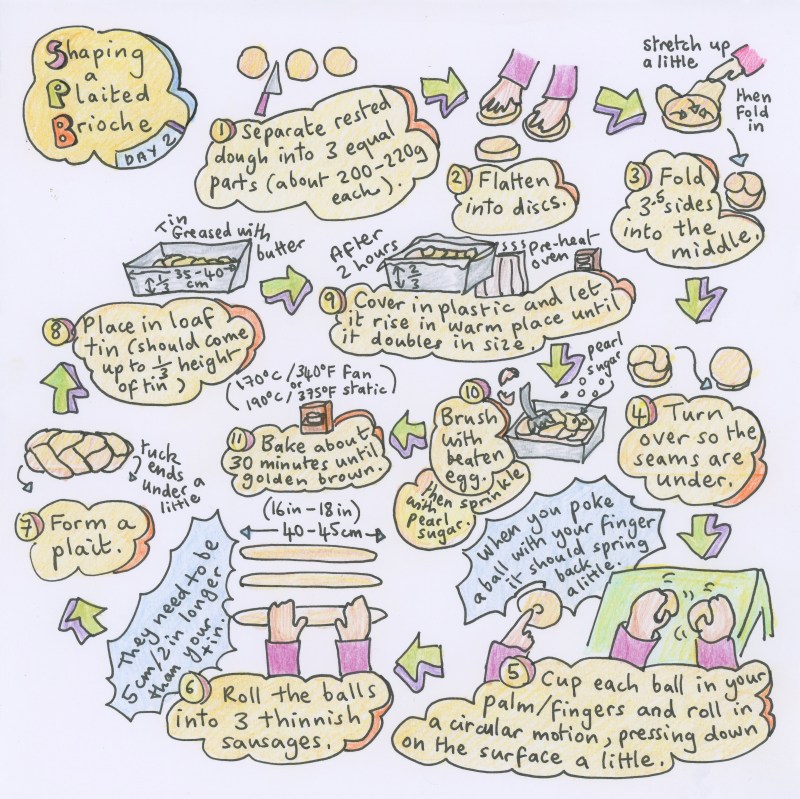 Shaping
a
Plaited
Brioche
DAY 2
① Separate rested
dough into 3 equal
parts (about 200-220g
each).
② Flatten
into discs.
stretch up
a little
then
Fold
in
③ Fold
3.5 sides
into the
middle.
④ Turn
over so the
seams are
under.
When you poke
a ball with your finger
it should spring
back
a little.
⑤ Cup each ball in your
palm/fingers and roll in
a circular motion, pressing down
on the surface a little.
(16in-18in)
40-45cm
They need to be
5cm/2in longer
than your
tin.
⑥ Roll the balls
into 3 thinnish
sausages.
tuck
ends
under a
little
⑦ Form a
plait.
tin
Greased with
butter
1/3
35-40
cm
⑧ Place in loaf
tin (should come
up to 1/3 height
of tin)
After
2 hours
2/3
sss
pre-heat
oven
⑨ Cover in plastic and let
it rise in warm place until
it doubles in size.
pearl
sugar
⑩
Brush
with
beaten
egg.
then sprinkle
with
pearl
sugar.
(170°C/340°F Fan
or
190°C/375°F static)
⑪ Bake about
30 minutes until
golden brown.